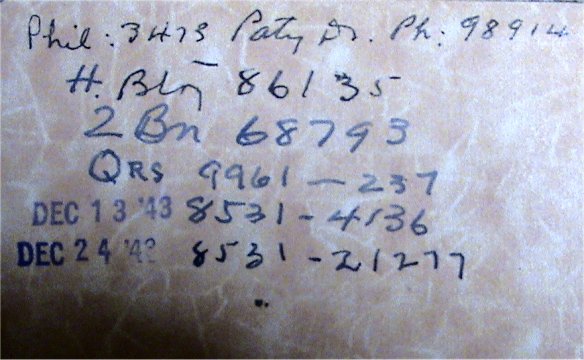 Phil: 3473 Paty Dr. Ph: 98914
H. Bldg 86135
2 Bn 68793
QRS 9961 - 237
DEC 13 '43 8531 - 4136
DEC 24 '43 8531 - 21277